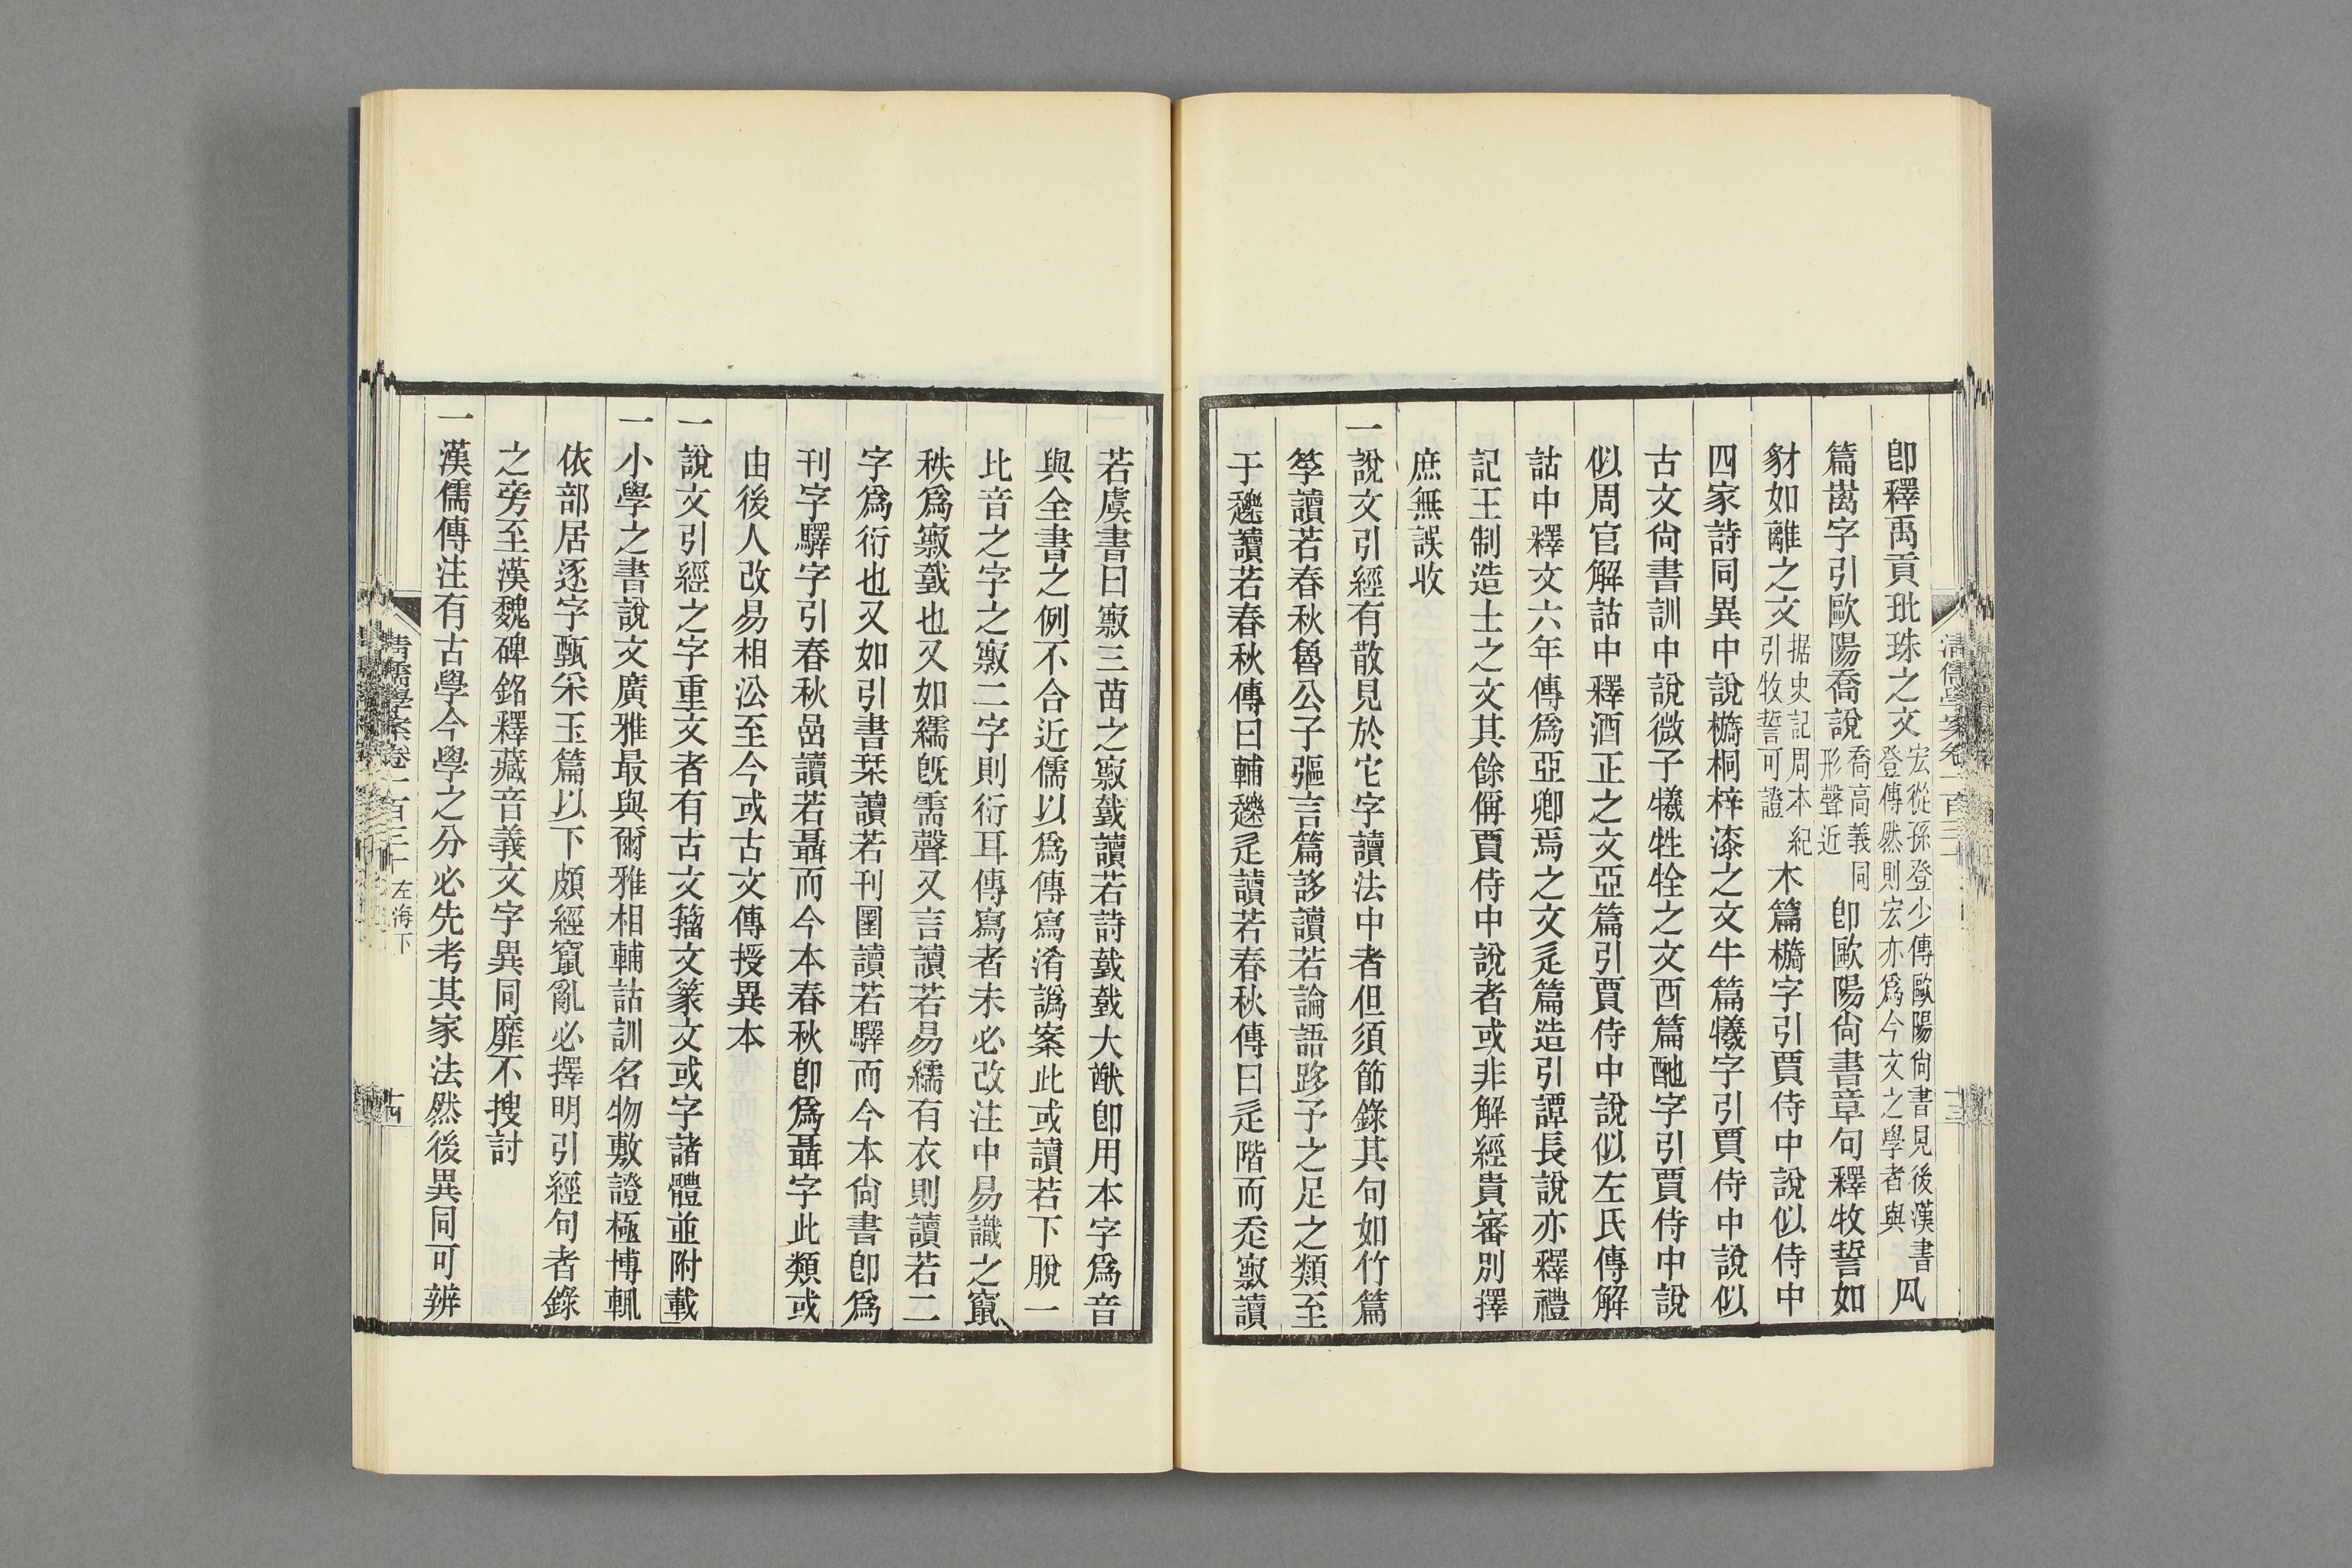 即釋禹貢玭珠之文宏從孫登少傳歐陽尙書見後漢書登傳然則宏亦爲今文之學者與瓜
篇𡿺字引歐陽喬說喬高義同形聲近卽歐陽尙書章句釋牧誓如
豺如離之文据史記周本紀引牧誓可證木篇檹字引賈侍中說似侍中
四家詩同異中說檹桐梓漆之文牛篇犧字引賈侍中說似
古文尙書訓中說微子犧牲牷之文酉篇酏字引賈侍中說
似周官解詁中釋酒正之文亞篇引賈侍中說似左氏傳解
詁中釋文六年傳爲亞卿焉之文辵篇造引譚長說亦釋禮
記王制造士之文其餘偁賈侍中說者或非解經貴審別擇
庶無誤收
一說文引經有散見於它字讀法中者但須節錄其句如竹篇
筡讀若春秋魯公子彄言篇誃讀若論語跢予之足之類至
于𨘢讀若春秋傳曰輔𨘢辵讀若春秋傳曰辵階而走𥨥讀
若虞書曰𥨥三苗之𥨥㦶讀若詩㦶㦶大猷卽用本字爲音
與全書之例不合近儒以爲傳寫淆譌案此或讀若下脫一
比音之字之𥨥二字則衍耳傳寫者未必改注中易識之竄
秩爲𥨥㦶也又如繻旣需聲又言讀若易繻有衣則讀若二
字爲衍也又如引書栞讀若刊圛讀若驛而今本尙書卽爲
刊字驛字引春秋嵒讀若聶而今本春秋卽爲聶字此類或
由後人改易相沿至今或古文傳授異本
一說文引經之字重文者有古文籀文篆文或字諸體並附載
一小學之書說文廣雅最與爾雅相輔詁訓名物敷證極博輒
依部居逐字甄采玉篇以下頗經竄亂必擇明引經句者錄
之旁至漢魏碑銘釋藏音義文字異同靡不搜討
一漢儒傳注有古學今學之分必先考其家法然後異同可辨
清儒學案卷一百三十 左海下 十四